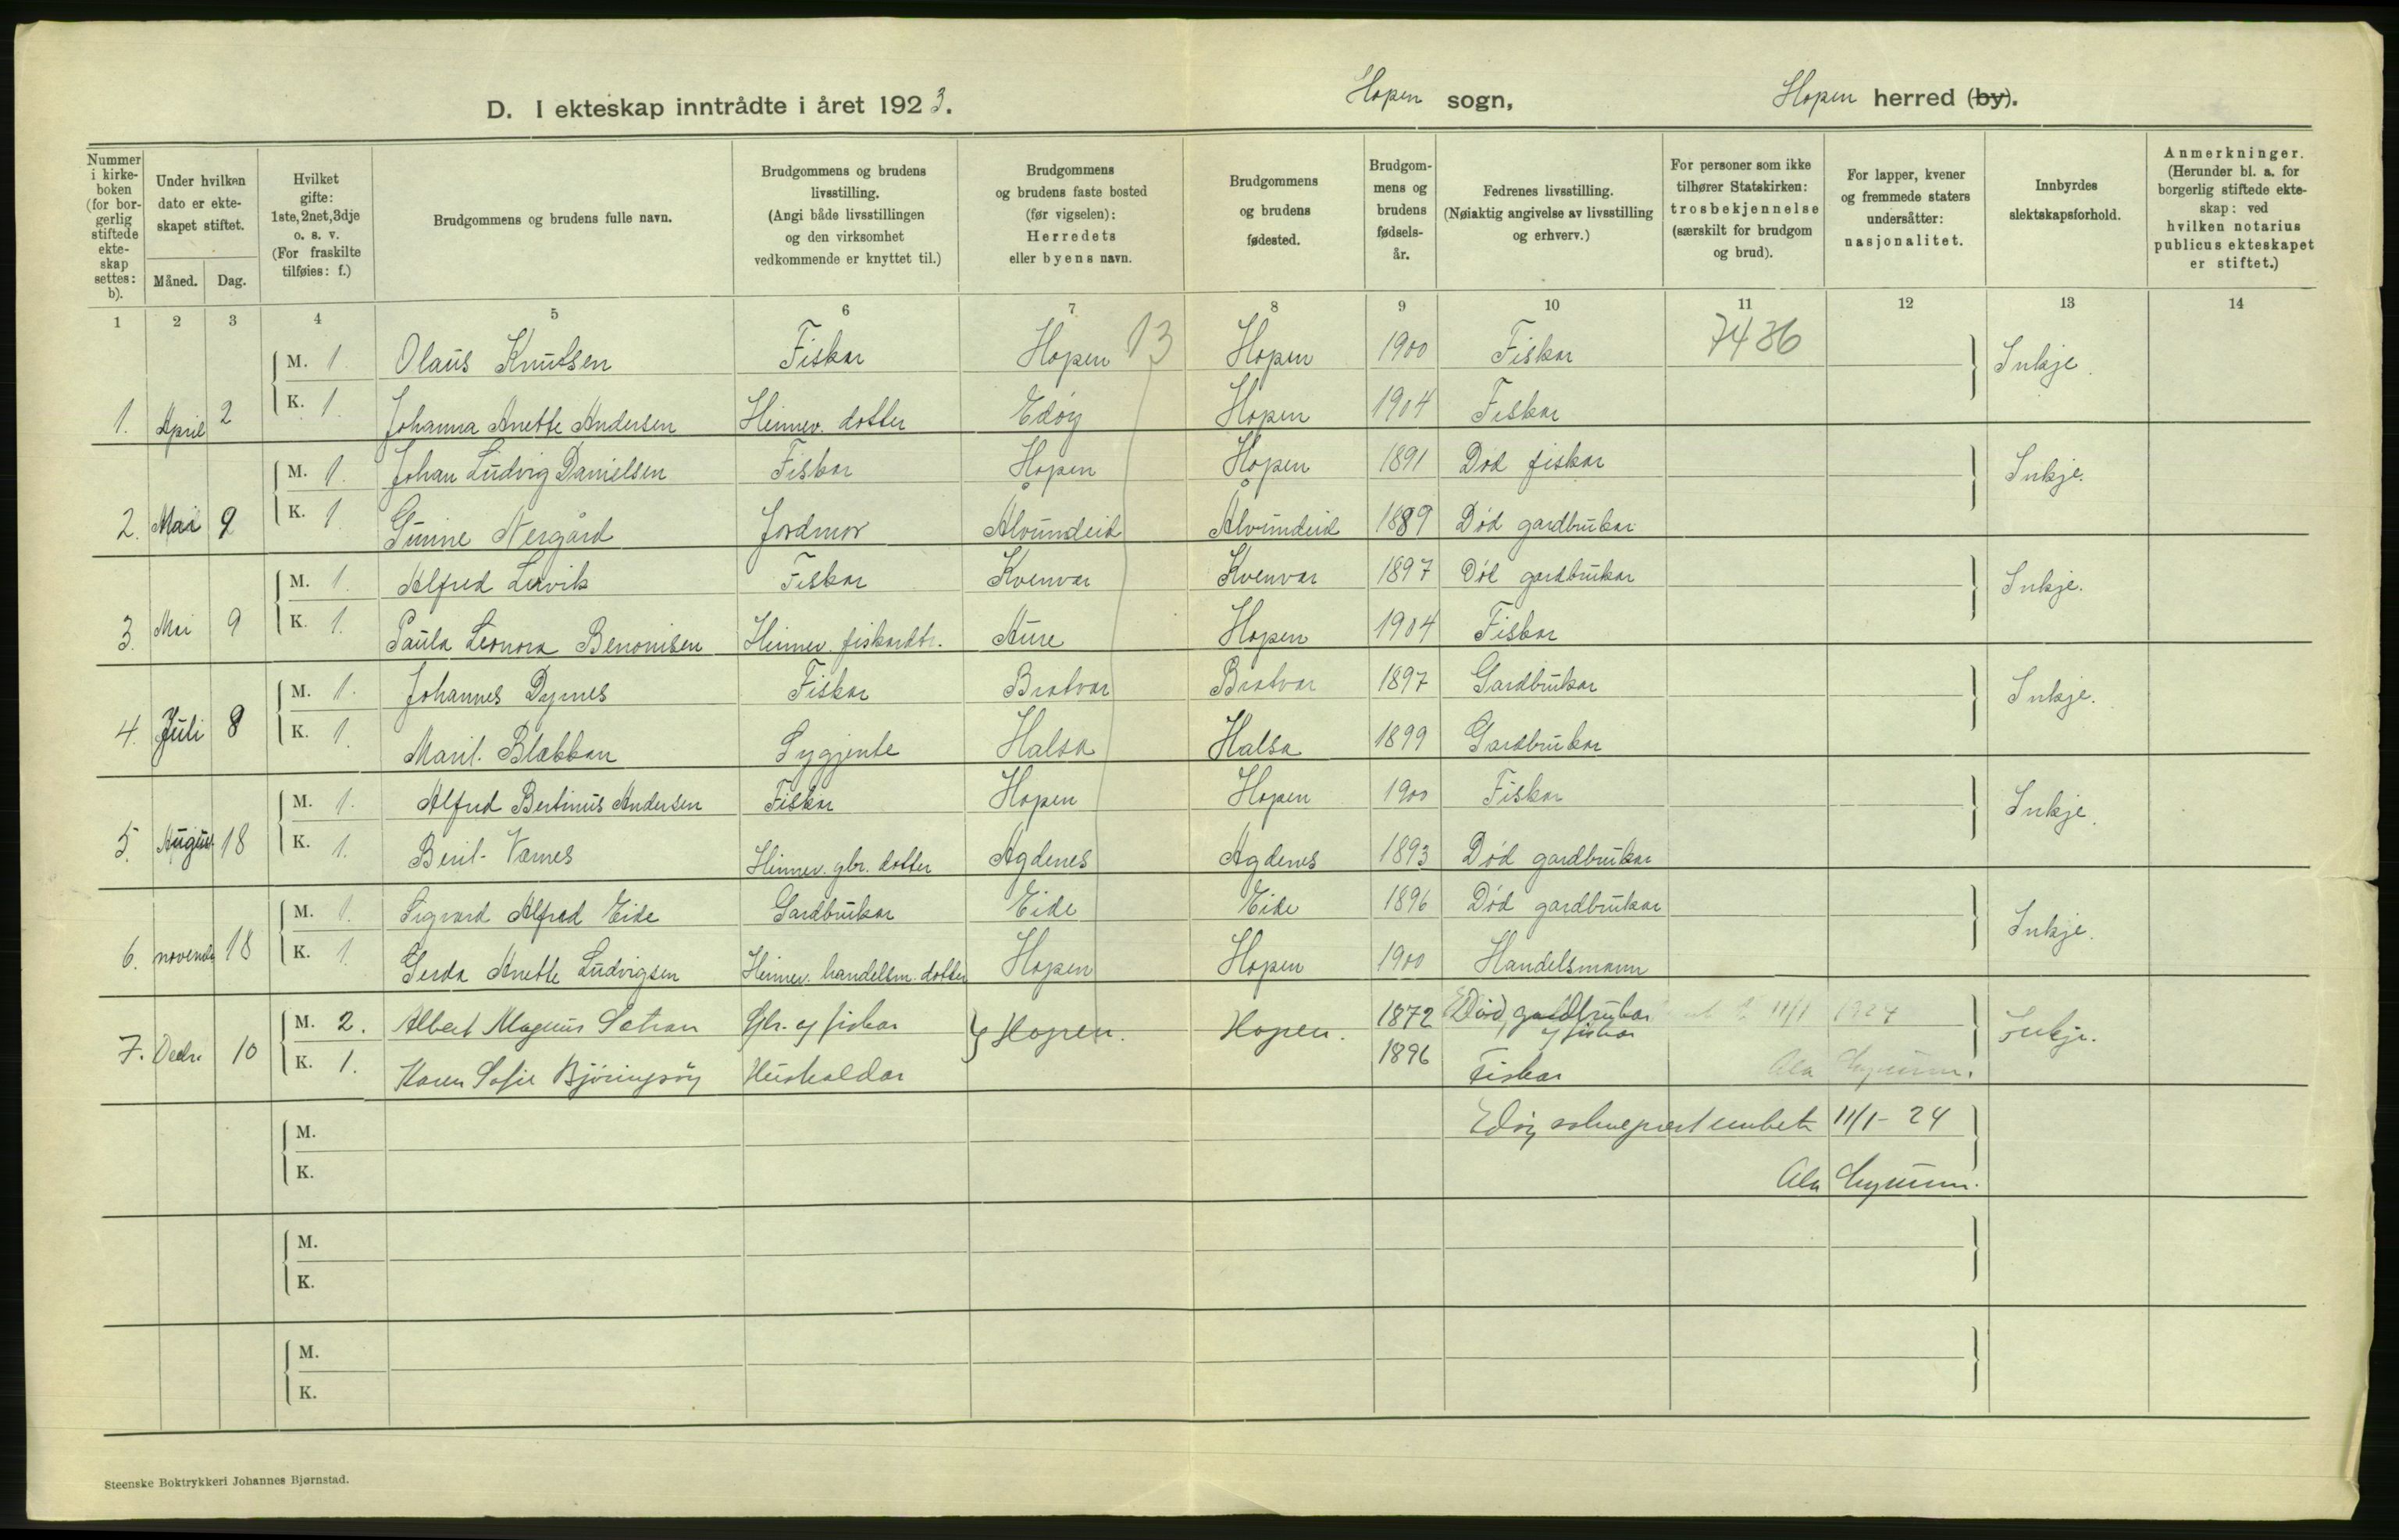 D. I ekteskap inntrådte i året 1923. Hopen sogn, Hopen herred (by).
Nummer i kirkeboken (for borgerlig stiftede ekteskap settes: b).
Under hvilken dato er ekteskapet stiftet.
Måned. Dag.
Hvilket gifte: 1ste, 2net, 3dje o. s. v. (For fraskilte tilføies: f.)
Brudgommens og brudens fulle navn.
Brudgommens og brudens livsstilling. (Angi både livsstillingen og den virksomhet vedkommende er knyttet til.)
Brudgommens og brudens faste bosted (før vigselen): Herredets eller byens navn.
Brudgommens og brudens fødested.
Brudgommens og brudens fødselsår.
Fedrenes livsstilling. (Nøiaktig angivelse av livsstilling og erhverv.)
For personer som ikke tilhører Statskirken: trosbekjennelse (særskilt for brudgom og brud).
For lapper, kvener og fremmede staters undersåtter: nasjonalitet.
Innbyrdes slektskapsforhold.
Anmerkninger. (Herunder bl. a. for borgerlig stiftede ekteskap: ved hvilken notarius publicus ekteskapet er stiftet.)
1 2 3 4 5 6 7 8 9 10 11 12 13 14
M. 1. Olaus Knutsen Fiskar Hopen 13 Hopen 1900 Fiskar 7436 Inkje.
1. April 2 K. 1. Johanna Anette Andersen Heimev. dotter Edøy Hopen 1904 Fiskar
M. 1. Johan Ludvig Danielsen Fiskar Hopen Hopen 1891 Død fiskar Inkje.
2. Mai 9 K. 1. Gunine Nergård Jordmor Ålvundeid Ålvundeid 1889 Død gardbrukar
M. 1. Alfred Leirvik Fiskar Kvenvær Kvenvær 1897 Død gardbrukar Inkje.
3. Mai 9 K. 1. Paula Leonora Benonisen Heimev. fiskardtr. Aure Hopen 1904 Fiskar
M. 1. Johannes Dyrnes Fiskar Bratvær Bratvær 1897 Gardbrukar Inkje.
4. Juli 8 K. 1. Marit Blakkan Sygjente Halsa Halsa 1899 Gardbrukar
M. 1. Alfred Bertinus Andersen Fiskar Hopen Hopen 1900 Fiskar Inkje.
5. August 18 K. 1. Berit Varnes Heimev. gbr. dotter Agdenes Agdenes 1893 Død gardbrukar
M. 1. Sigvard Alfred Eide Gardbrukar Eide Eide 1896 Død gardbrukar Inkje.
6. novemb 18 K. 1. Gerda Anette Ludvigsen Heimev. handelsm. dotter Hopen Hopen 1900 Handelsmann
M. 2. Albert Magnus Sætran Gbr. og fiskar } Hopen. Hopen. 1872 Død, gardbrukar og fiskar 11/1 1924 Inkje.
7. Decbr. 10 K. 1. Karen Sofie Bjøringsøy Hushaldar 1896 Fiskar
M. Edøy sokneprestembete 11/1-24
K.
M.
K.
M.
K.
Steenske Boktrykkeri Johannes Bjørnstad.